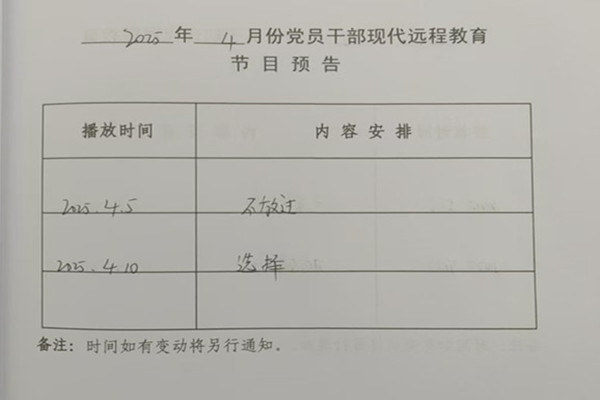 2025年 4月份党员干部现代远程教育
节目预告
播放时间 内容安排
2025.4.5 不放过
2025.4.10 选择
备注：时间如有变动将另行通知。